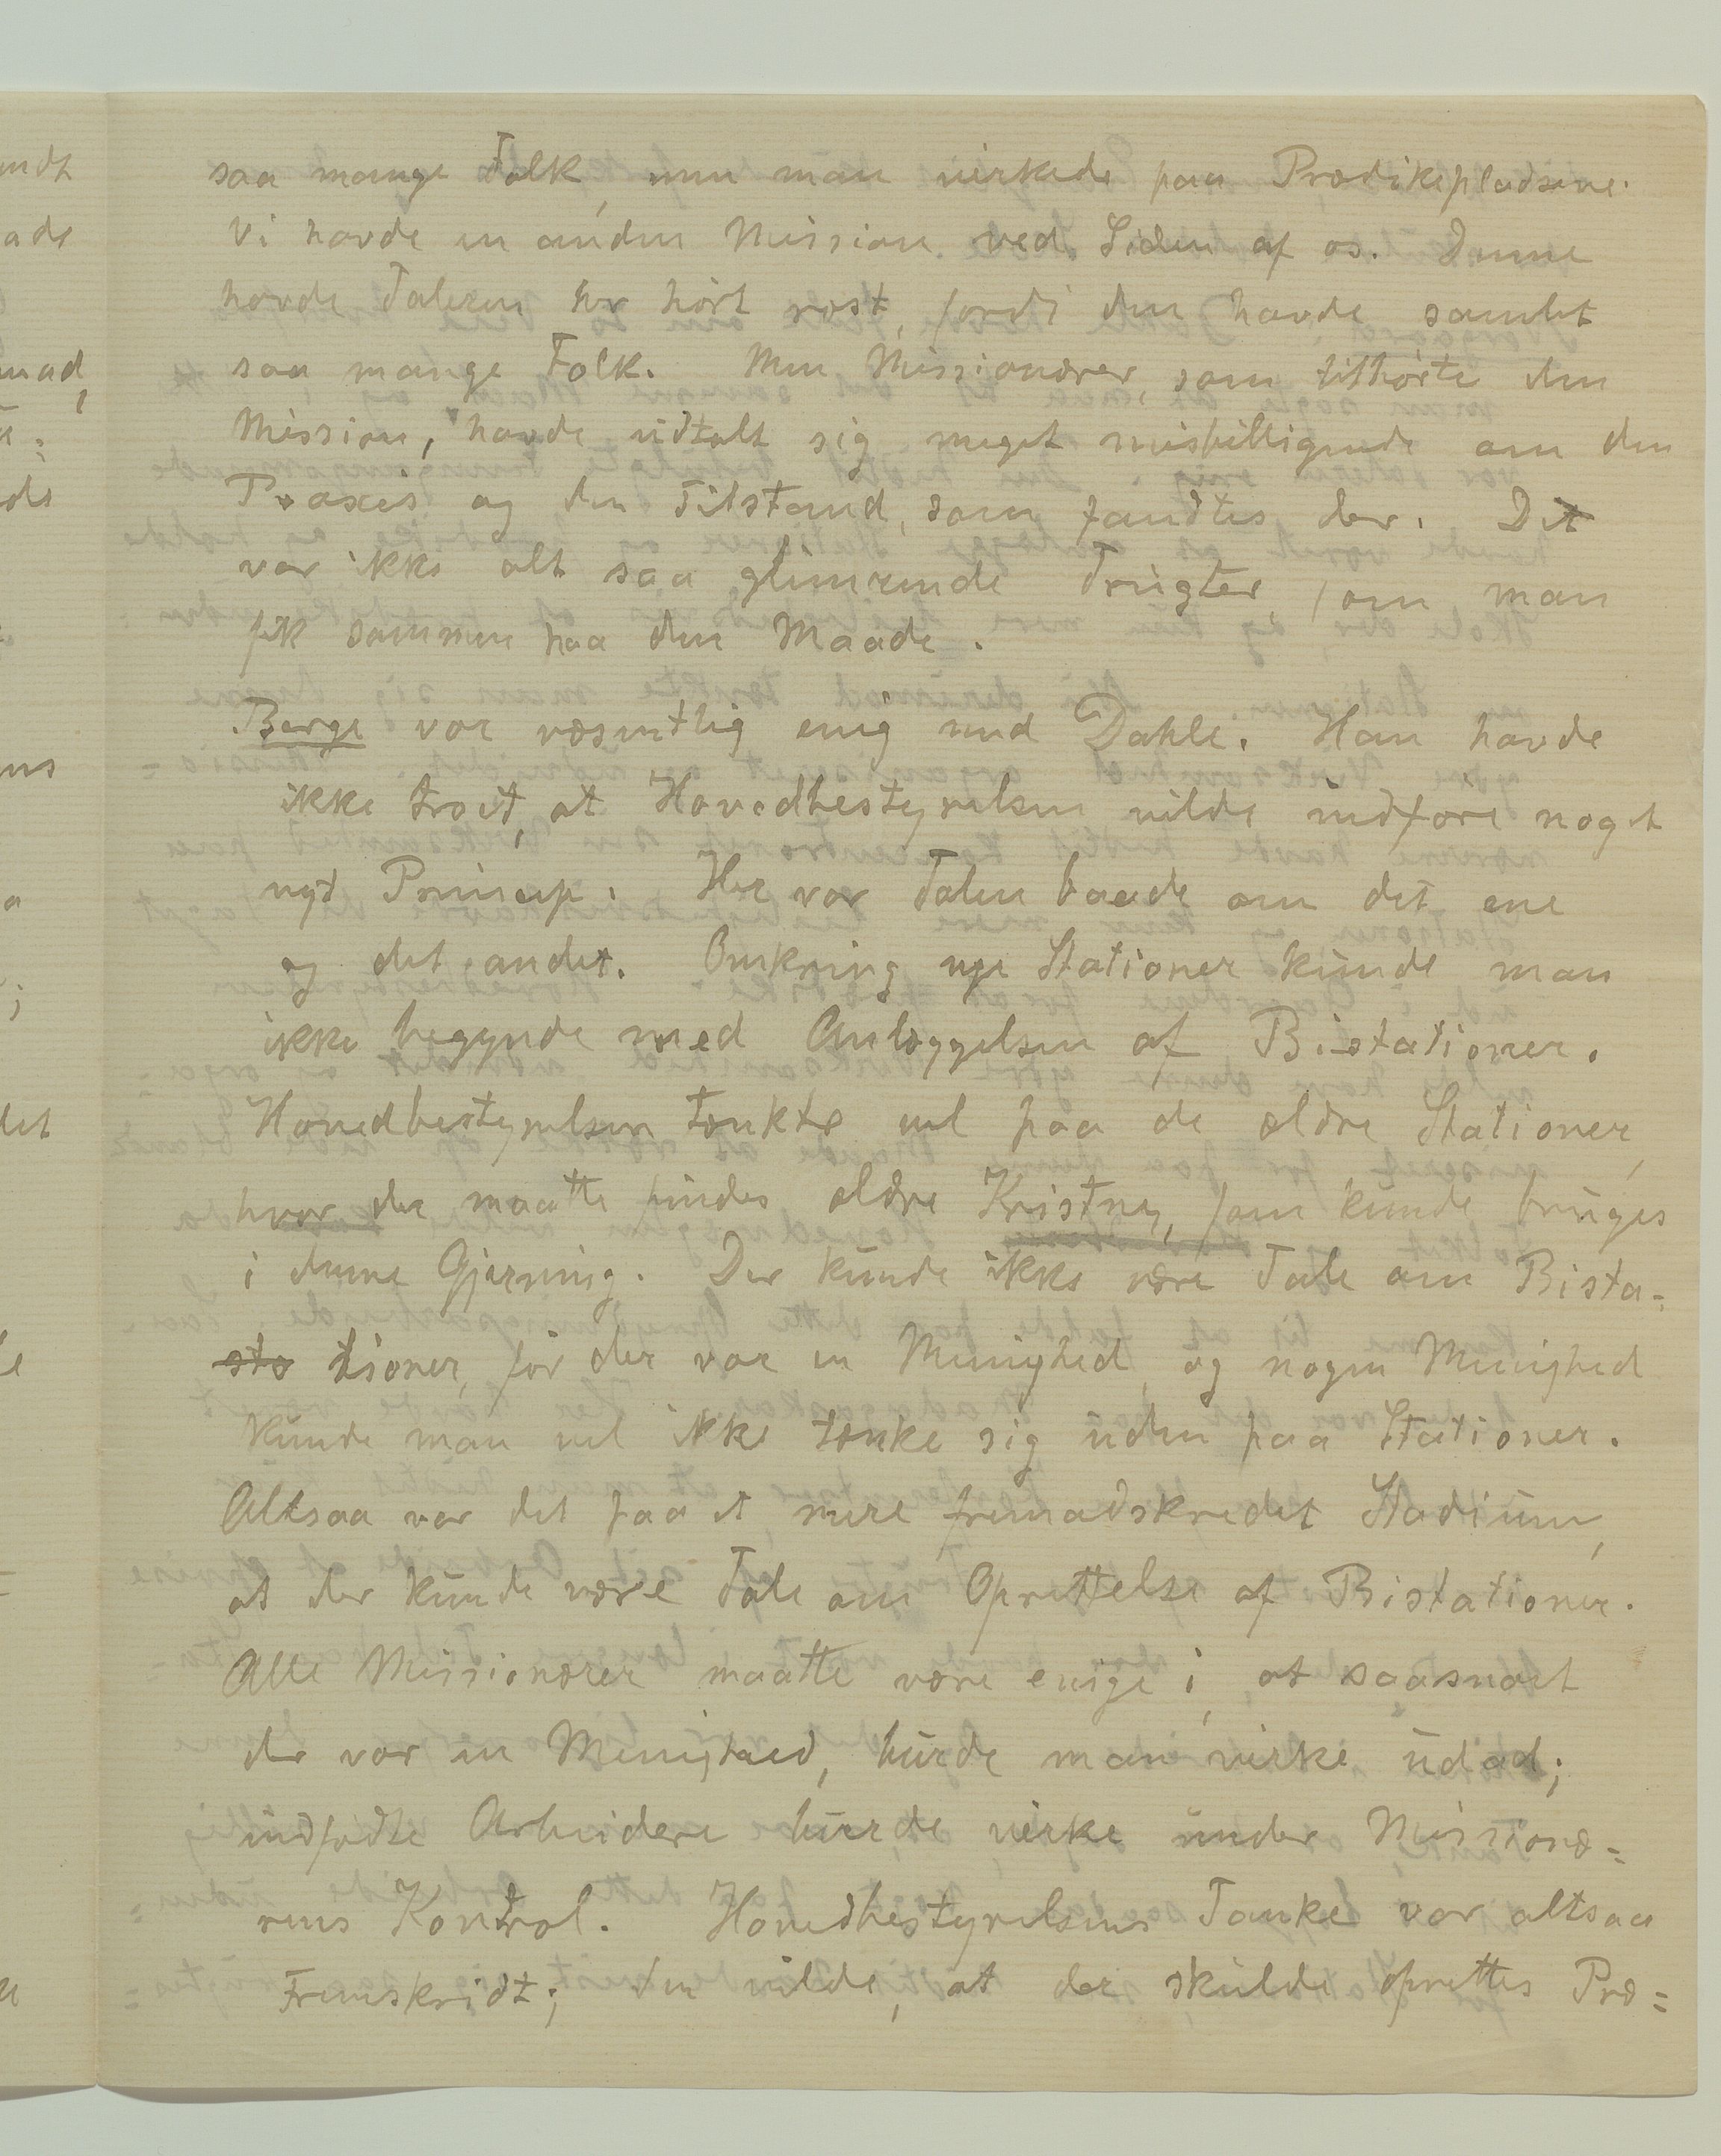 saa mange Folk, mens man virkede paa Prædikepladsene.
Vi havde en anden Mission ved Siden af os. Denne
havde Taleren hørt rost, fordi den havde samlet
saa mange Folk. Men Missionærer, som tilhørte den
Mission, havde udtalt sig meget misbilligende om den
Praxis og den Tilstand, som fandtes der. Det
var ikke alt saa glimrende Frugter, som man
fik sammen paa den Maade.
Borge var væsentlig enig med Dahle. Han havde
ikke troet, at Hovedbestyrelsen vilde indføre noget
nyt Princip. Her var Talen baade om det ene
og det andet. Omkring nye Stationer kunde man
ikke begynde med Anlæggelsen af Bistationer.
Hovedbestyrelsen tænkte vel paa de ældre Stationer,
hvor der maatte findes ældre Kristne, som kunde bruges
i denne Gjerning. Der kunde ikke være Tale om Bista-
sta tioner, før der var en Menighed, og nogen Menighed
kunde man vel ikke tænke sig uden paa Stationer.
Altsaa var det paa et mere fremadskredet Stadium,
at der kunde være Tale om Oprettelse af Bistationer.
Alle Missionærer maatte være enige i, at saasnart
der var en Menighed, burde man virke udad;
indfødte Arbeidere burde virke under Missionæ-
rens Kontrol. Hovedbestyrelsens Tanke var altsaa
Fremskridt; den vilde, at der skulde oprettes Præ-